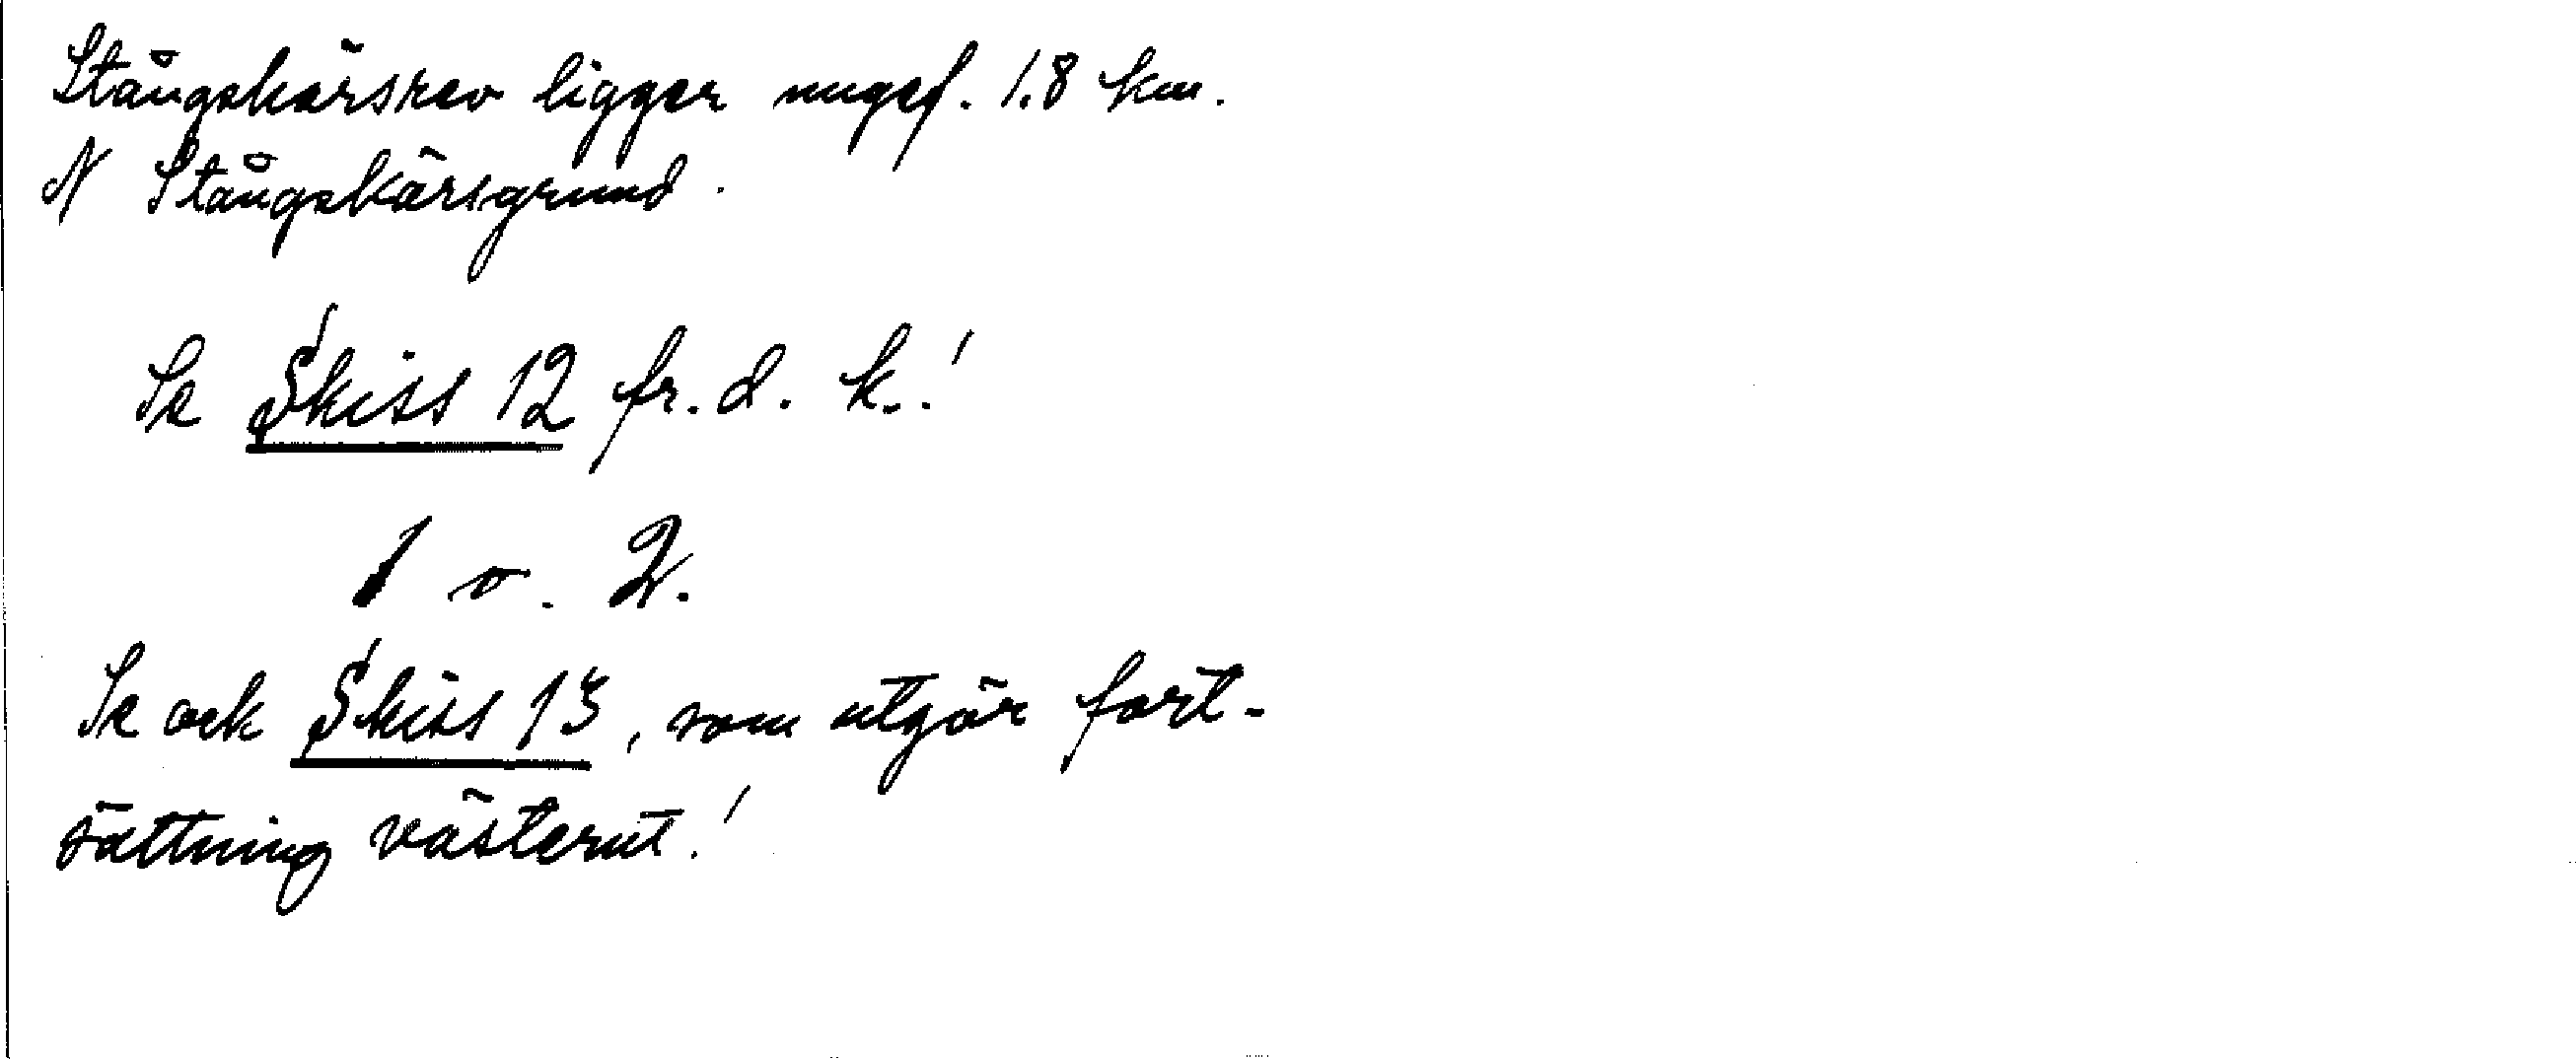 Stångskärsrev ligger ungef. 1.8 km.
N Stångskärsgrund.
Se Skiss 12 fr. d. k.!
1 o. 2.
Se ock Skiss 13, som utgör fort-
sättning västerut!